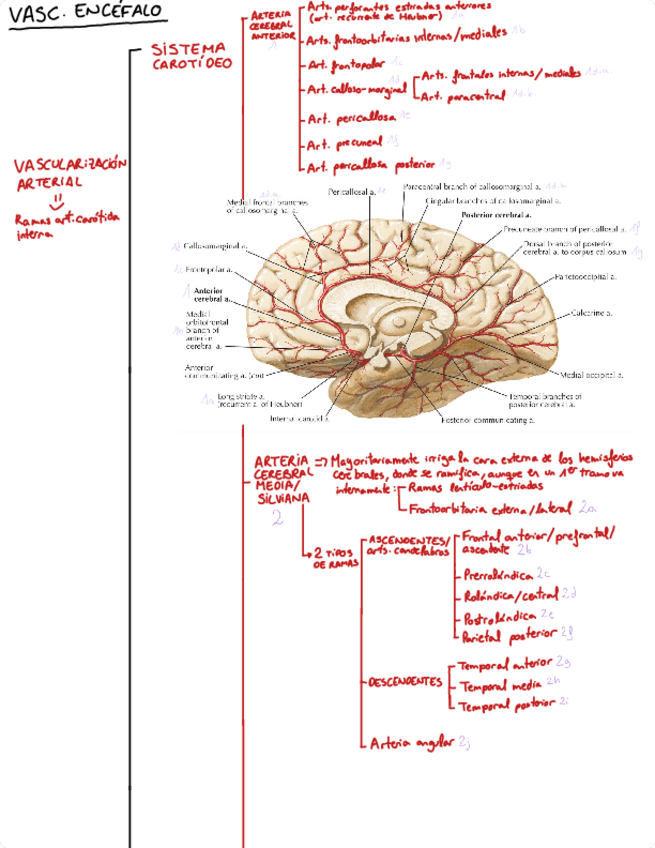 VASC. ENCÉFALO
SISTEMA
CAROTÍDEO
VASCULARIZACIÓN
ARTERIAL
Ramas art. carótida
interna
ARTERIA
CEREBRAL
ANTERIOR
1
Arts. perforantes estriadas anteriores
(art. recurrente de Heubner) 1a
Arts. frontoorbitarias internas/mediales 1b
Art. frontopolar 1c
Art. calloso-marginal 1d
Arts. frontales internas/mediales 1d.a.
Art. paracentral 1d.b.
Art. pericallosa 1e
Art. precuneal 1f
Art. pericallosa posterior 1g
1d.a.
Medial frontal branches
of callosomarginal a.
Pericallosal a. 1e
Paracentral branch of callosomarginal a. 1d.b.
Cingular branches of callosomarginal a.
Posterior cerebral a.
Precuneate branch of pericallosal a. 1f
Dorsal branch of posterior
cerebral a. to corpus callosum 1g
Parietooccipital a.
Calcarine a.
Medial occipital a.
Temporal branches of
posterior cerebral a.
Posterior communicating a.
1d Callosomarginal a.
1c Frontopolar a.
1 Anterior
cerebral a.
Medial
orbitofrontal
1b branch of
anterior
cerebral a.
Anterior
communicating a. (cut)
1a Long striate a.
(recurrent a. of Heubner)
Internal carotid a.
ARTERIA
CEREBRAL
MEDIA/
SILVIANA
2
=> Mayoritariamente irriga la cara externa de los hemisferios
cerebrales, donde se ramifica, aunque en un 1er tramo va
internamente:
Ramas lentículo-estriadas
Frontoorbitaria externa/lateral 2a
2 TIPOS
DE RAMAS
ASCENDENTES/
arts. candelabros
Frontal anterior/prefrontal/
ascendente 2b
Prerrolándica 2c
Rolándica/central 2d
Postrolándica 2e
Parietal posterior 2f
DESCENDENTES
Temporal anterior 2g
Temporal media 2h
Temporal posterior 2i
Arteria angular 2j